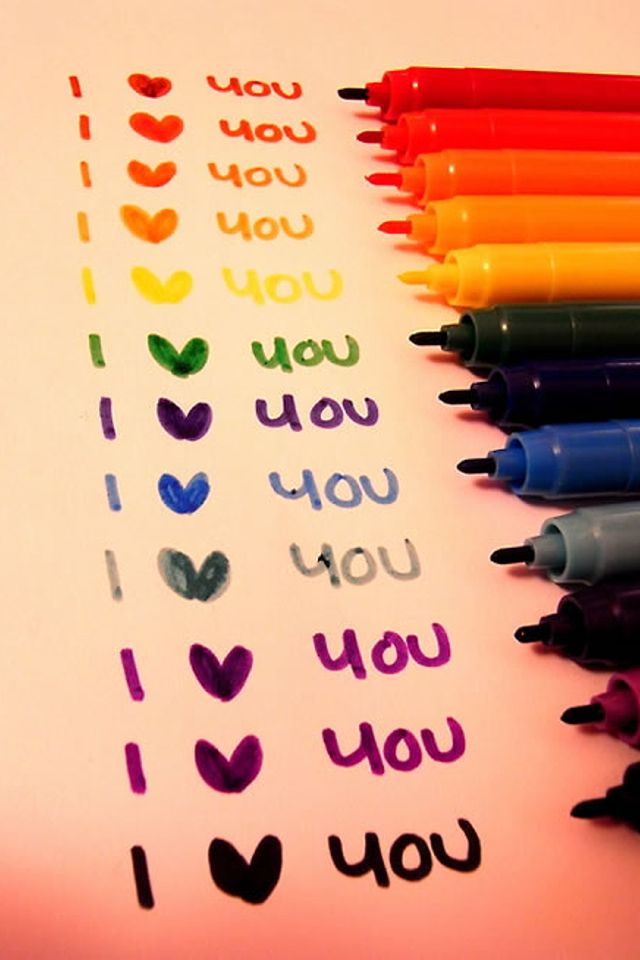 I ♥ you
I ♥ you
I ♥ you
I ♥ you
I ♥ you
I ♥ you
I ♥ you
I ♥ you
I ♥ you
I ♥ you
I ♥ you
I ♥ you